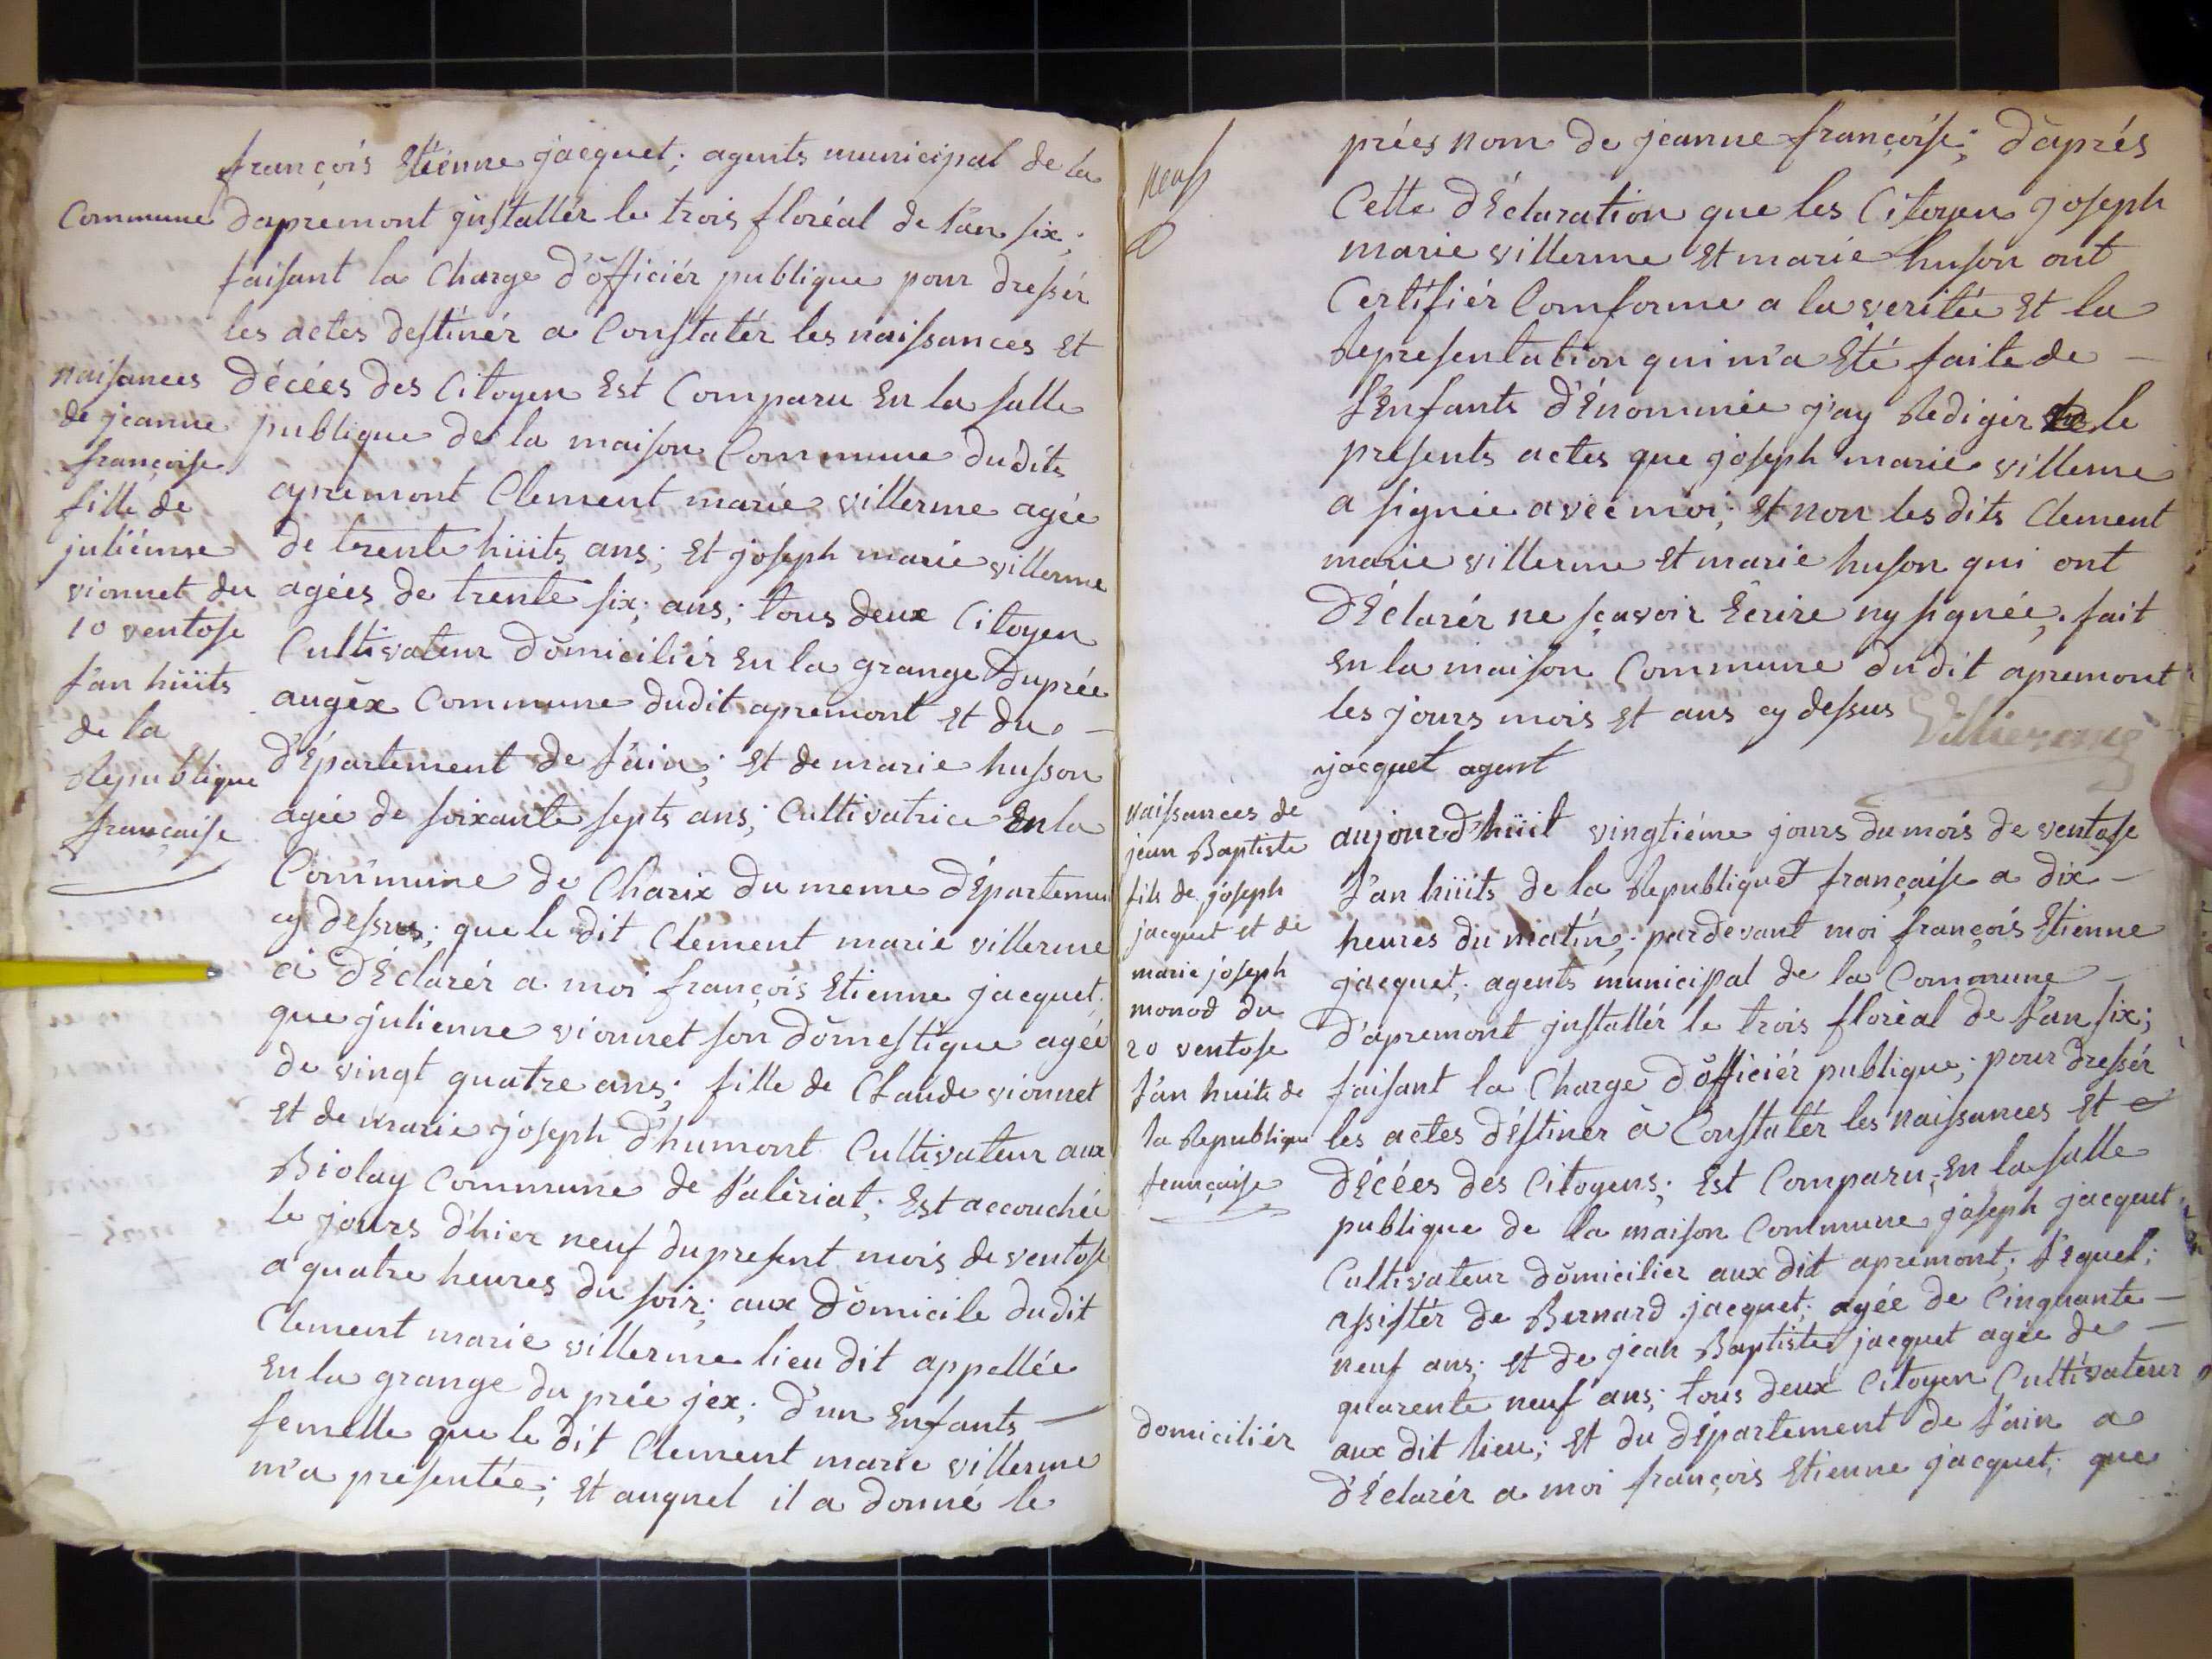 françois Etiénne jacquet; agents municipal de la
Commune dapremont justallér le trois floréal de l'an six;
faisant la Charge d'officiér publique pour dressér
les actes destinér a Constatér les naissances Et
décées des Citoyen Est Comparu En la salle
publique de la maison Commune dudits
apremont Clement marie villerme agée
de trente hüits ans; Et joseph marie villerme
agées de trente six; ans; tous deux Citoyen
Cultivateur domiciliér En la grange duprée
augex Commune dudit apremont Et du -
d'Epartement de l'ain; Et de marie husson
agée de soixante septs ans; Cultivatrice En la
Commune de Charix du meme d'Epartemen
cy dessus; que le dit Clement marie villerme
a d'Eclarér a moi françois Etienne jacquet;
que julienne vionnet son domestique agée
de vingt quatre ans; fille de Claude vionnet
Et de marie joseph d'humont Cultivateur aux
Biolay Commune de l'alèriat; Est accouchée
le jours d'hier neuf du present mois de ventose
a quatre heures du soir; aux domicile dudit
Clement marie villerme lieu dit appellée
En la grange du prée jex; d'un Enfants -
femelle que le dit Clement marie villerme
m'a presentée; Et auquel il a donné le
naisances
de jeanne
françoise
fille de
juliénne
vionnet du
10 ventose
l'an hüits
de la
Republique
française
neuf
prées nom de jeanne françoise; d'aprés
Cette d'Eclaration que les Citoyen joseph
marie villerme Et marie huson ont
Certifiér Comforme a la veritée Et la
Representation qui m'a Eté faite de -
l'Enfants d'Enommée j'ay Redigér le
presents actes que joseph marie villerme
a signée aveé moi; Et non les dits Clement
marie villerme Et marie huson qui ont
d'Eclarér ne sçavoir Ecrire ny signée; fait
En la maison Commune dudit apremont
les jours mois Et ans cy dessus
Villierme
jacquet agent
naissances de
jean Baptiste
fils de joseph
jacquet et de
marie joseph
monod du
20 ventose
l'an huits de
la Republique
française
aujourd'hüit vingtiéme jours du mois de ventose
l'an hüits de la Republiquet française a dix -
heures du matin; pardevant moi françois Etienne
jacquet; agents municipal de la Commune -
d'apremont justallér le trois floréal de l'an six;
faisant la Charge d'officiér publique; pour dressér
les actes d'éstiner à Constatér les naissances Et
d'Ecées des Citoyens; Est Comparu; En la salle
publique de la maison Commune joseph jacquet
Cultivateur domicilier aux dit apremont; l'equel;
assistér de Bernard jacquet; agée de Cinquante -
neuf ans; Et de jean Baptiste jacquet agée de -
quarente neuf ans; tous deux Citoyen Cultivateur
domiciliér aux dit lieu; Et du d'Epartement de l'ain a
d'Eclarér a moi françois Etienne jacquet; que